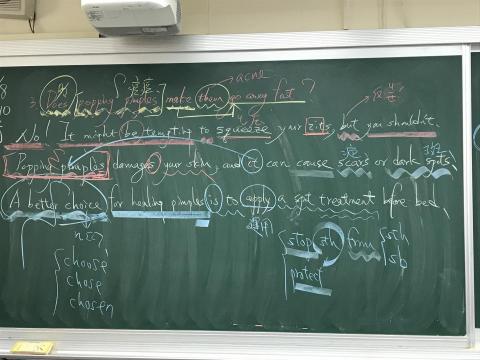 acne
3. Does popping pimples make them go away fast?
No! It might be tempting to squeeze your zits, but you shouldn't.
Popping pimples damages your skin, and it can cause scars or dark spots.
A better choice for healing pimples is to apply a spot treatment before bed.
n.
choose
chose
chosen
stop sth from sth
protect sb